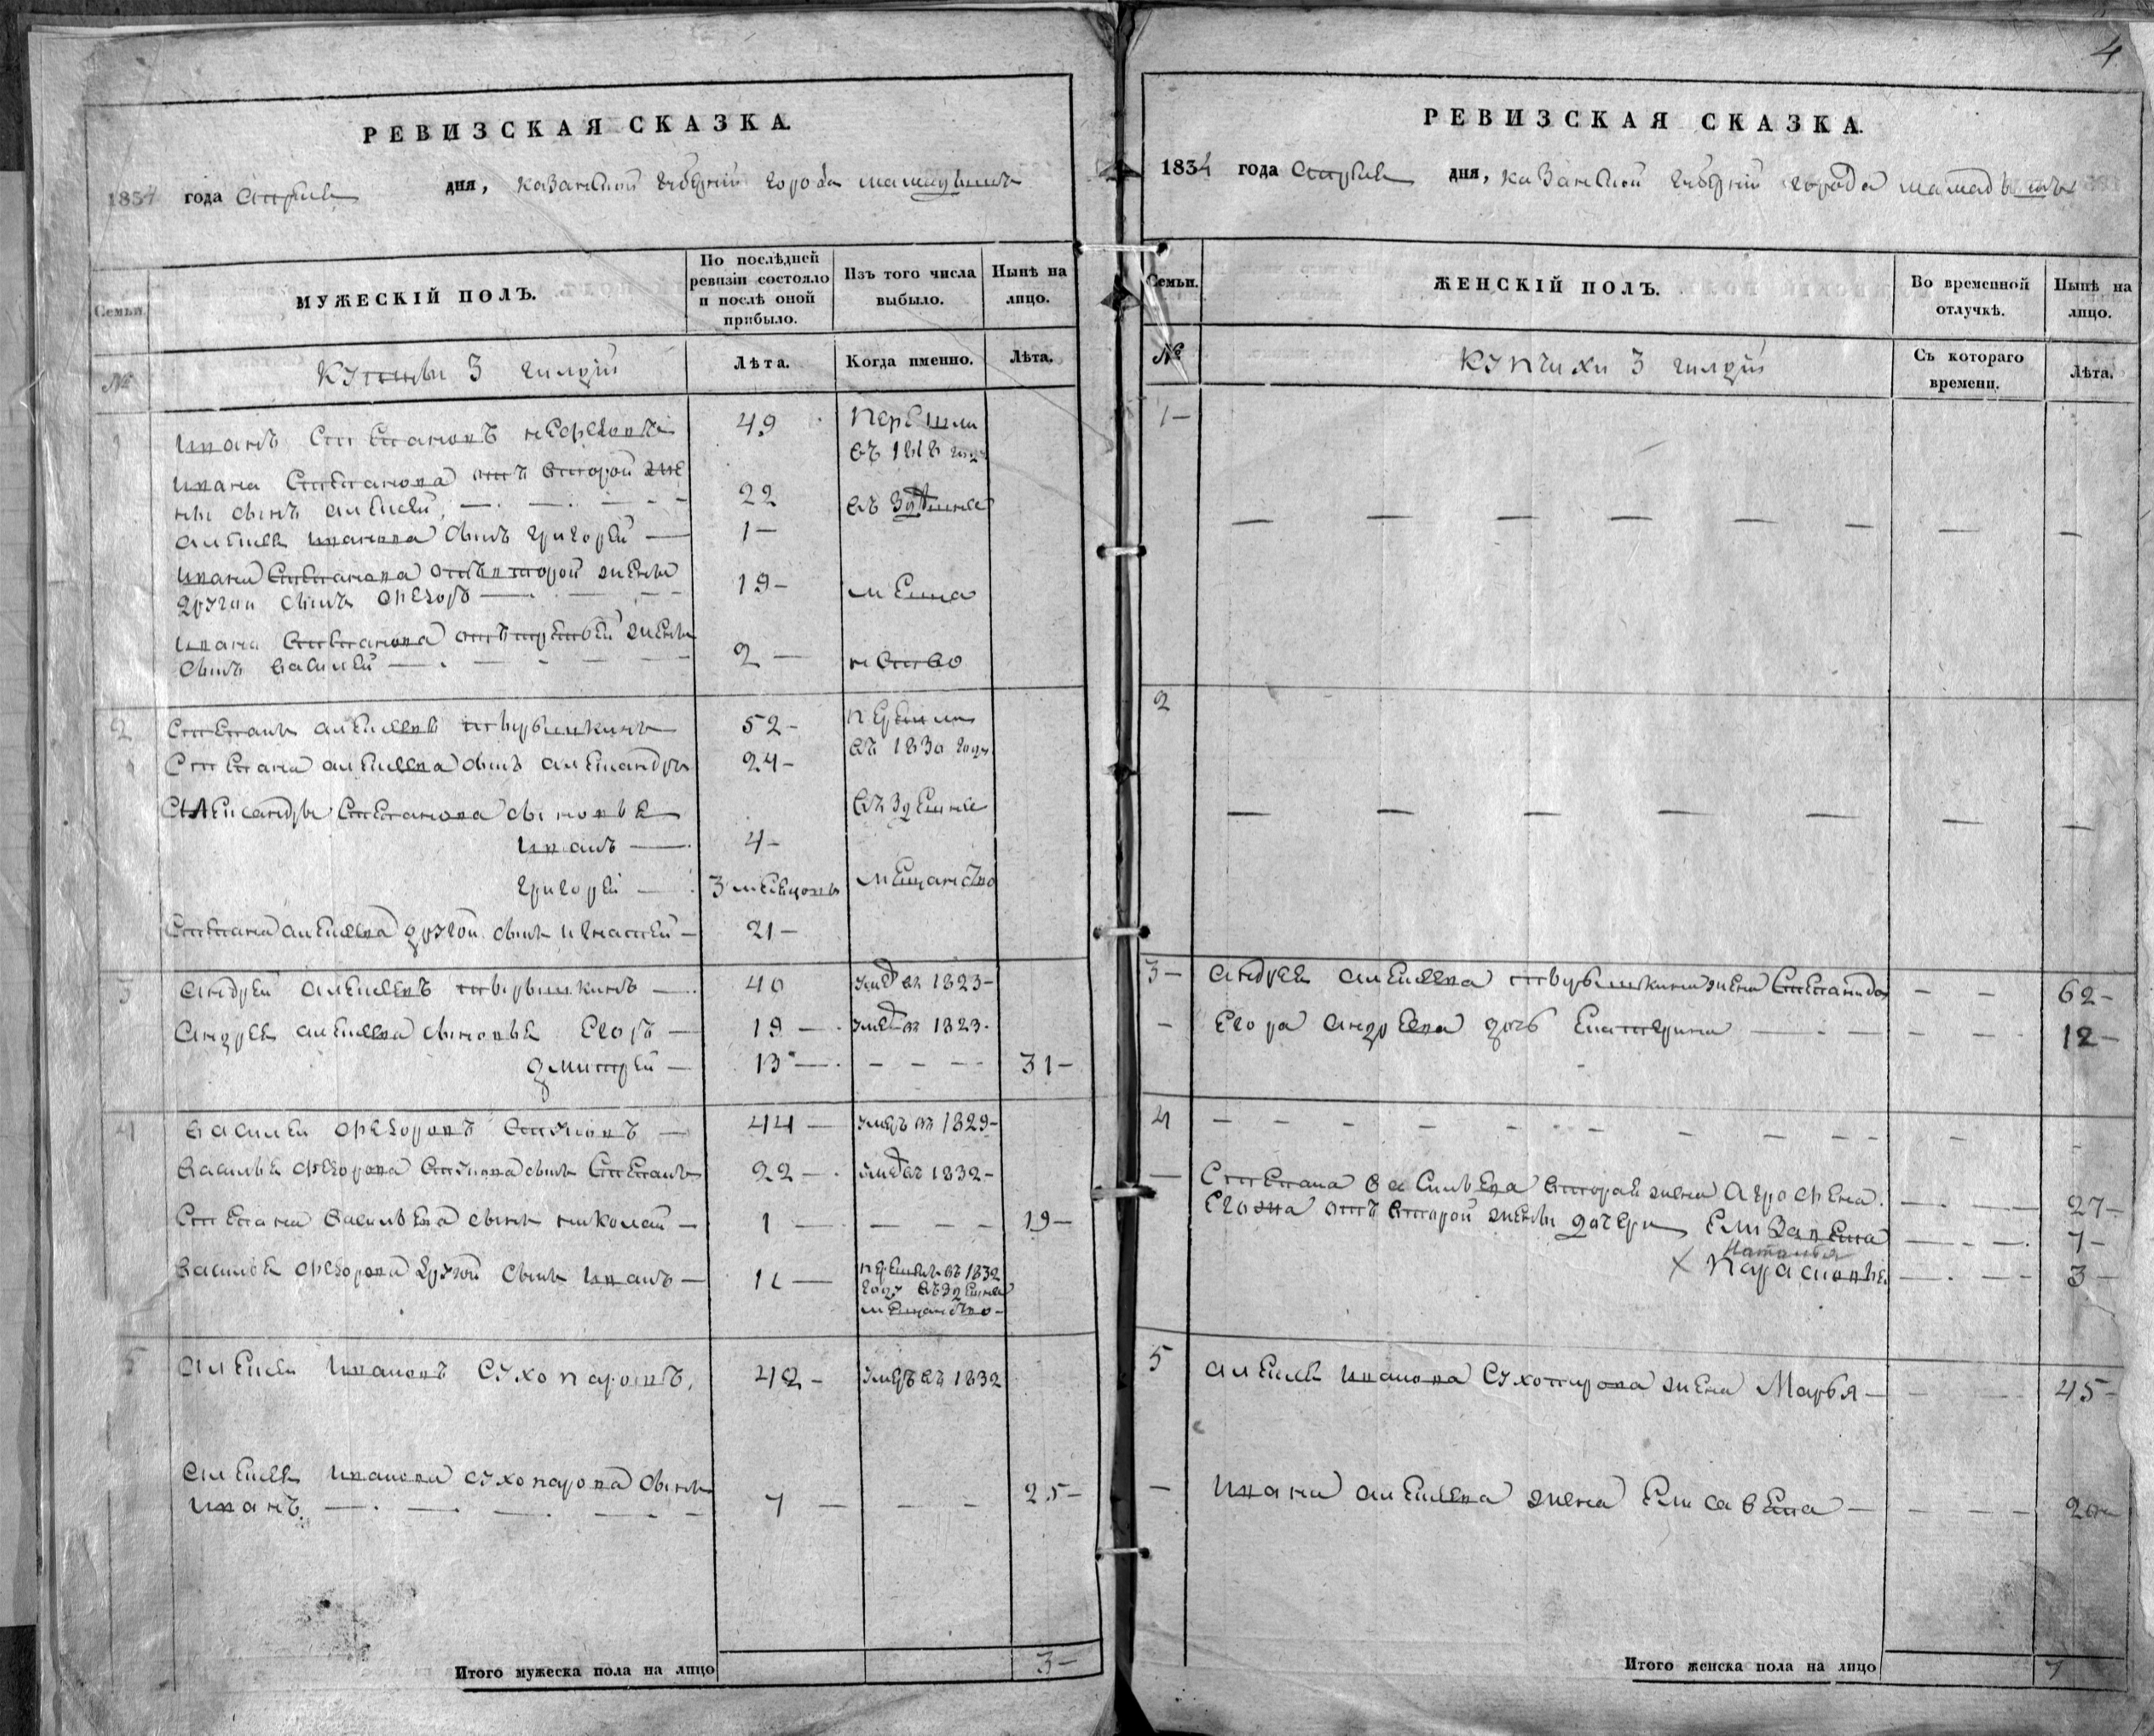 РЕВИЗСКАЯ СКАЗКА.
1834 года Апреля дня, казанской губернии города мамадыша
Семьи. МУЖЕСКІЙ ПОЛЪ. По послѣдней ревизіи состояло и послѣ оной прибыло. Изъ того числа выбыло. Нынѣ на лицо.
№ купцы 3 гилдии Лѣта. Когда именно. Лѣта.
1 Иванъ Степановъ 49 перешли
въ 1818 году
Ивана Степанова отъ второй же
ны сынъ алексей 22 въ здешнее
алексея Иванова сынъ григорей 1
Ивана Степанова отъ второй жены
другой сынъ федоръ 19 меща
Ивана Степанова отъ третьей жены
сынъ василей 2 нство
2 Степанъ алексеевъ твырышкинъ 52 перешли
въ 1830 году
Степана алексеева сынъ александръ 24
александры Степанова сыновья въ здешнее
Иванъ 4
григорей 3 месецовъ мещанство
Степана алексеева другой сынъ игнатей 21
3 андрей алексеевъ твырышкинъ 40 умер въ 1823
андрея алексеева сыновья Егоръ 19 умер въ 1823
дмитрей 13 31
4 василей федоровъ 44 умеръ въ 1829
василья федорова сынъ Степанъ 22 умер въ 1832
Степана васильева сынъ николай 1 19
василья федорова другой сынъ Иванъ 11 перешелъ въ 1832
году въ здешнее
мещанство
5 алексей Ивановъ Сухопаровъ 42 умеръ въ 1832
алексея Иванова сухопарова сынъ
Иванъ 7 25
Итого мужеска пола на лицо 3
4
РЕВИЗСКАЯ СКАЗКА.
1834 года апреля дня, казанской губернии города мамадыша
Семьи. ЖЕНСКІЙ ПОЛЪ. Во временной отлучкѣ. Нынѣ на лицо.
№ купчихи 3 гилдии Съ котораго времени. Лѣта.
1
2
3 андрея алексеева твырышкина жена Степанида 62
Егора андреева дочь Екатерина 12
4
Степана васильева вторая жена Аграфена 27
Егожа отъ второй жены дочери Елизавета 7
Наталья
х Парасковья 3
5 алексея иванова Сухопарова жена Марья 45
Ивана алексеева жена Елисавета 20
Итого женска пола на лицо 7